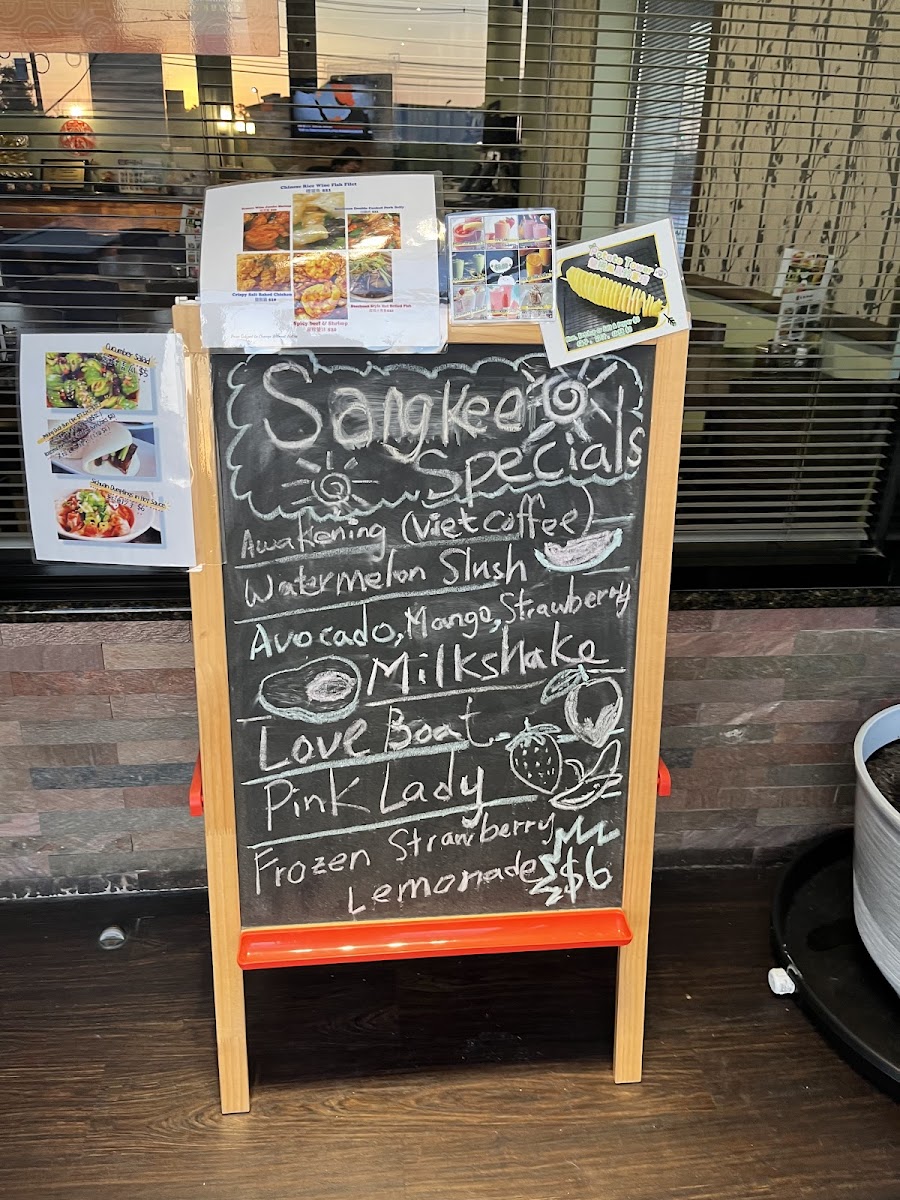 Chinese Rice Wine Fish Filet
Crispy Salt Baked Chicken
Spicy Beef & Shrimp
Potato Tower
Cucumber Salad
$5
Sichuan Dumplings in Hot Sauce
$6
Sangkee
Specials
Awakening (Viet Coffee)
Watermelon Slush
Avocado, Mango, Strawberry
Milkshake
Love Boat
Pink Lady
Frozen Strawberry
Lemonade $6